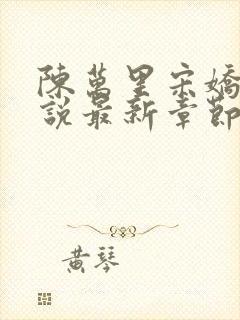 陳萬里宋嬌
說最新章節
黃琴